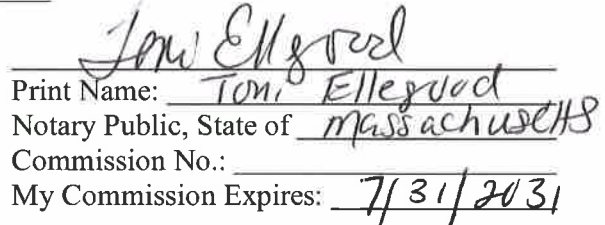 Toni Ellegood
Print Name: Toni Ellegood
Notary Public, State of Massachusetts
Commission No.:
My Commission Expires: 7/31/2031